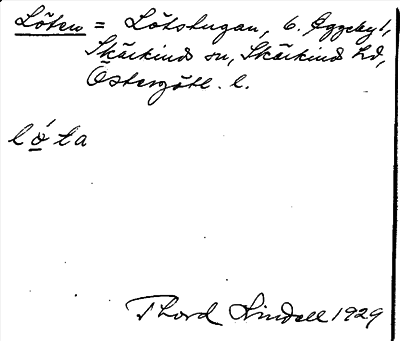 Löten = Lötstugan, 6. Äggeby¹,
Skärkinds sn, Skärkinds hd,
Östergötl. l.
lo̲´ta
Thord Lindell 1929